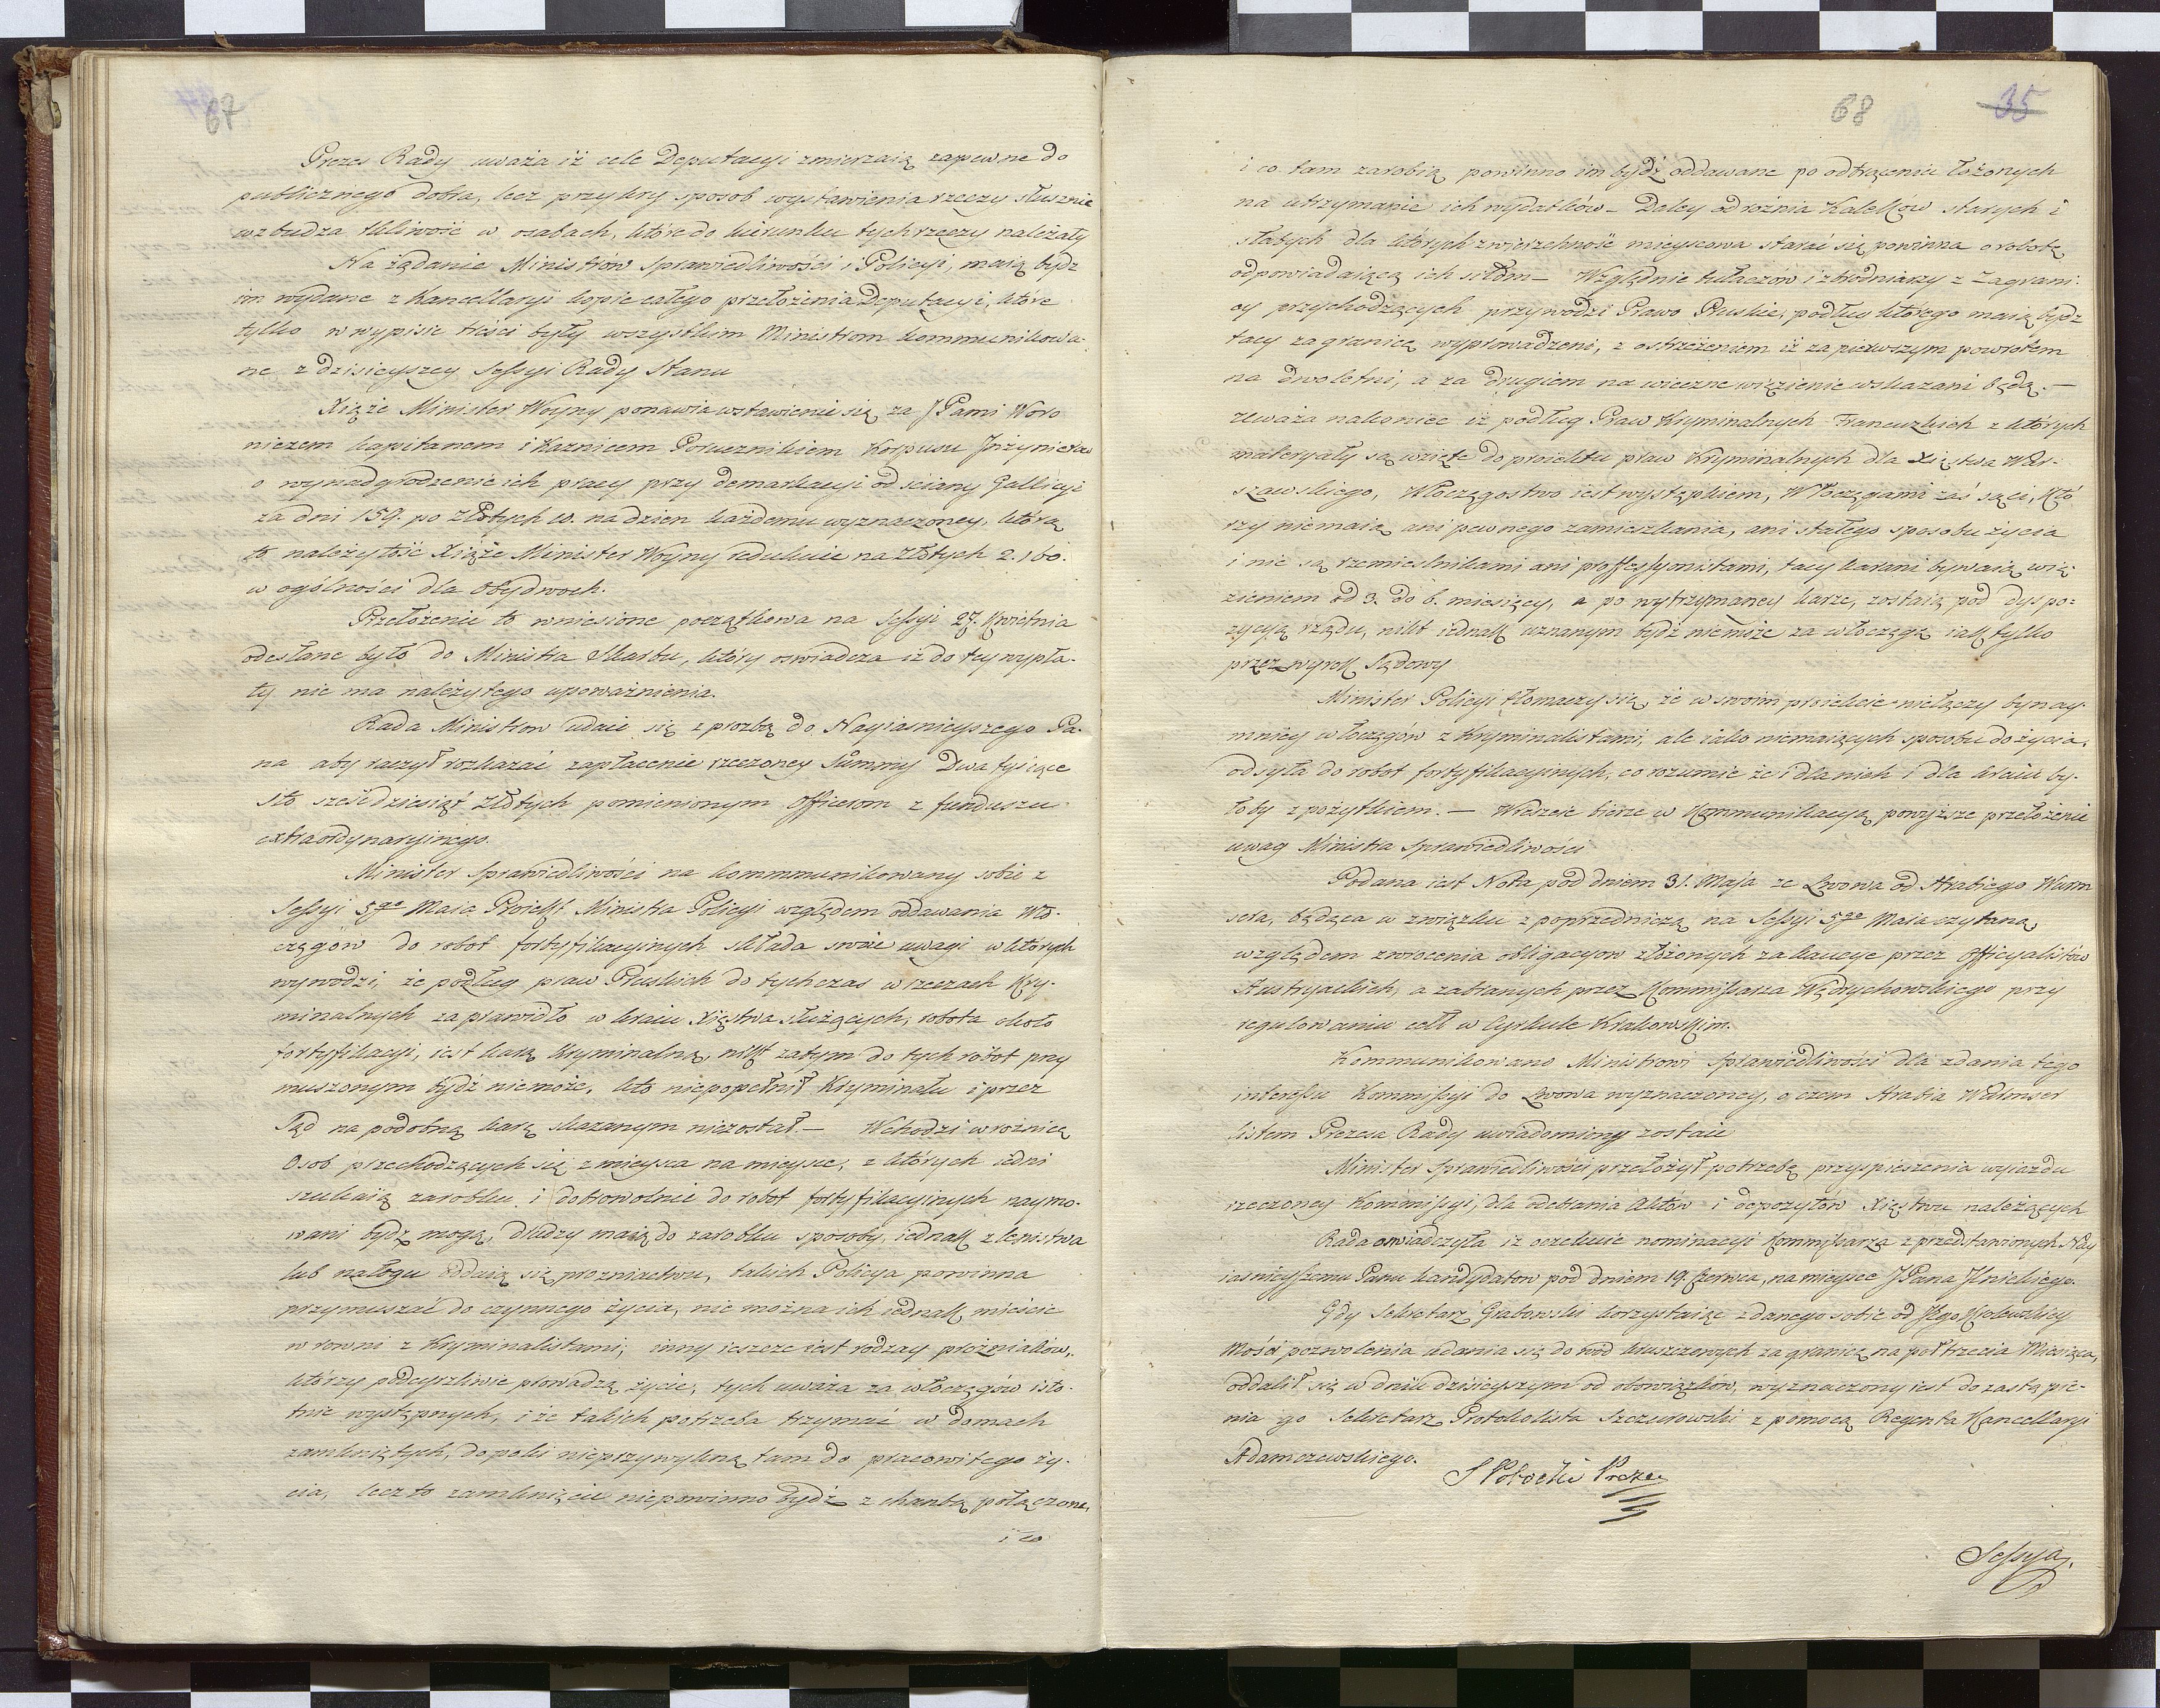 67
Prezes Rady uważa iż cele Deputacyi zmierzaią zapewne do
publicznego dobra, lecz przykry sposob wystawienia rzeczy słusznie
wzbudza tkliwość w osobach, które do kierunku tych rzeczy należały
Na żądanie Ministrów Sprawiedliwości i Policyi, maią bydz
im wydane z Kancellaryi kopie całego przełożenia Deputacyi, które
tylko w wypisie treści były wszystkim Ministrom kommunikowa-
ne z dzisieyszey Sessyi Rady Stanu
Xiąże Minister Woyny ponawia wstawienie się za JPami Woro
niczem kapitanem i Kaznicem Porucznikiem Korpusu Inżynierów
o wynadgrodzenie ich pracy przy demarkacyi od sciany Gallicyi
za dni 159. po złotych w. na dzien każdemu wyznaczoney, którą
to należytość Xiąże Minister Woyny redukuie na złotych 2.160.
w ogólności dla obydwoch.
Przełożenie to wniesione początkowa na Sessyi 27. Kwietnia
odesłane było do Ministra Skarbu, który oswiadcza iż do tey wypła-
ty nie ma należytego upoważnienia.
Rada Ministrow udaie się z prozbą do Nayiasnieyszego Pa-
na aby raczył rozkazać zapłacenie rzeczoney Summy Dwa tysiące
sto sześćdziesiąt złotych pomienionym Officerom z funduszu
extraordynaryinego.
Minister Sprawiedliwości na kommmunikowany sobie z
Sessyi 5go Maia Proiekt Ministra Policyi względem oddawania Wło-
częgów do robot fortyfikacyinych składa swoie uwagi w których
wywodzi, że podług praw Pruskich do tychczas w rzeczach Kry-
minalnych za prawidło w kraiu Xięstwa służących, robota około
fortyfikacyi, iest karą kryminalną, nikt zatym do tych robot przy
muszonym bydź niemoże, kto niepopełnił Kryminału i przez
Sąd na podobną karę skazanym niezostał. — Wchodzi w rożnicę
Osob przechodzących się z mieysca na mieysce, z których iedni
szukaią zarobku i dobrowolnie do robot fortyfikacyinych naymo-
wani bydź mogą, drudzy maią do zarobku sposoby, iednak z lenistwa
lub nałogu oddaią się prozniactwu, takich Policya powinna
przymuszać do czynnego życia, nie można ich iednak mieścic
w rowni z kryminalistami; inny ieszcze iest rodzay prożniaków,
którzy podeyrzliwie prowadzą życie, tych uważa za włoczęgów isto-
tnie występnych, i że takich potrzeba trzymać w domach
zamkniętych, dopoki nieprzywykną tam do pracowitego ży-
cia, lecz to zamknięcie niepowinno bydź z chanbą połączone,
i co
68
35
i co tam zarobią powinno im bydź oddawane po odtrąceniu łożonych
na utrzymanie ich wydatków — Daley odrożnia Kalekow starych i
słabych dla których zwierzchność mieyscowa starać się powinna o robotę
odpowiadaiącą ich siłom — Względnie tułaczów i zbrodniarzy z Zagrani-
cy przychodzących przywodzi Prawo Pruskie, podług którego maią bydz
tacy za granicę wyprowadzeni, z ostrzeżeniem iż za pierwszym powrotem
na dwoletni, a za drugiem na wieczne więzienie wskazani będą. —
Uważa nakoniec iż podług Praw Kryminalnych Francuzkich z których
materyały są wzięte do proiektu praw Kryminalnych dla Xięstwa War-
szawskiego, Włoczęgostwo iest występkiem, Włoczęgami zaś są ci, Któ
rzy niemaią ani pewnego zamieszkania, ani stałego sposobu życia
i nie są rzemieslnikami ani proffessyonistami, tacy karani bywaią wię
zieniem od 3. do 6. miesięcy, a po wytrzymaney karze, zostaią pod dyspo-
zycyą rządu, nikt iednak uznanym bydź niemoże za włoczęgę iak tylko
przez wyrok Sądowy
Minister Policyi tłomaczy się, że w swoim proiekcie niełączy bynay-
mniey włoczęgów z kryminalistami, ale iako niemaiących sposobu do życia,
odsyła do robot fortyfikacyinych, co rozumie że i dla nich i dla kraiu by-
łoby z pożytkiem. — Wreszcie bierze w Kommunikacyą powyższe przełożenie
uwag Ministra Sprawiedliwości
Podana iest Nota pod dniem 31. Maja ze Lwowa od Hrabiego Wurm
sera, będąca w związku z poprzedniczą na Sessyi 5go Maia czytaną,
względem zwrocenia obligacyow złożonych za kaucye przez Officyalistów
Austryackich, a zabranych przez Kommissarza Wędrychowskiego przy
regulowaniu cełł w Cyrkule Krakowskim.
Kommunikowano Ministrowi Sprawiedliwości dla zdania tego
interessu Kommissyi do Lwowa wyznaczoney, o czem Hrabia Wurmser
listem Prezesa Rady uwiadomiony zostaie
Minister Sprawiedliwości przełożył potrzebę przyspieszenia wyiazdu
rzeczoney Kommissyi, dla odebrania aktów i depozytów Xięstwu należących
Rada oswiadczyła iz oczekuie nominacyi Kommissarza z przedstawionych Nay
iasnieyszemu Panu kandydatow pod dniem 19. Czerwca, na mieysce JPana Ilnickiego.
Gdy Sekretarz Grabowski korzystaiąc z danego sobie od JKgo Krolewskiey
Mości pozwolenia udania się do wod kruszczowych za granicę na poł trzecia Miesiąca,
oddalił się w dniu dzisieyszym od obowiązków, wyznaczony iest do zastąpie-
nia go Sekretarz Protokolista Szczurowski z pomocą Regenta Kancellaryi
Adamczewskiego.
S Potocki Prezes
Sessya